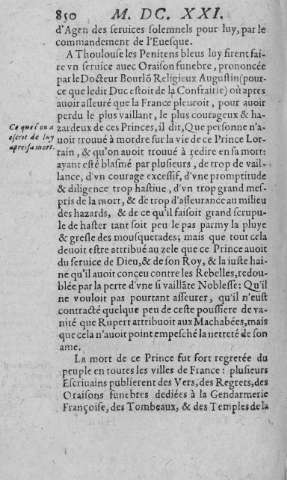 850 M. DC. XXI.
d'Agen des seruices solemnels pour luy, par le
commandement de l'Euesque.
A Thoulouse les Penitens bleus luy firent fai-
re vn seruice auec Oraison funebre, prononcée
par le Docteur Bourlō Religieux Augustin (pour-
ce que ledit Duc estoit de la Confrairie) où apres
auoir asseuré que la France pleuroit, pour auoir
perdu le plus vaillant, le plus courageux & ha-
zardeux de ces Princes, il dit, Que personne n'a-
Ce que l'on a
escrit de luy
apres sa mort.
uoir trouué à mordre sur la vie de ce Prince Lor-
rain, & qu'on auoit trouué à redire en sa mort:
ayant esté blasmé par plusieurs, de trop de vail-
lance, d'vn courage excessif, d'vne promptitude
& diligence trop hastiue, d'vn trop grand mes-
pris de la mort, & de trop d'asseurance au milieu
des hazards, & de ce qu'il faisoit grand scrupu-
le de haster tant soit peu le pas parmy la pluye
& gresle des mousquetades; mais que tout cela
deuoit estre attribué au zele que ce Prince auoit
du seruice de Dieu, & de son Roy, & la iuste hai-
ne qu'il auoit conçeu contre les Rebelles, redou-
blée par la perte d'vne si vaillāte Noblesse: Qu'il
ne vouloit pas pourtant asseurer, qu'il n'eust
contracté quelque peu de ceste poussiere de va-
nité que Rupert attribuoit aux Machabées, mais
que cela n'auoit point empesché la netteté de son
ame.
La mort de ce Prince fut fort regretée du
peuple en toutes les villes de France: plusieurs
Escriuains publierent des Vers, des Regrets, des
Oraisons funebres dediées à la Gendarmerie
Françoise, des Tombeaux, & des Temples de la